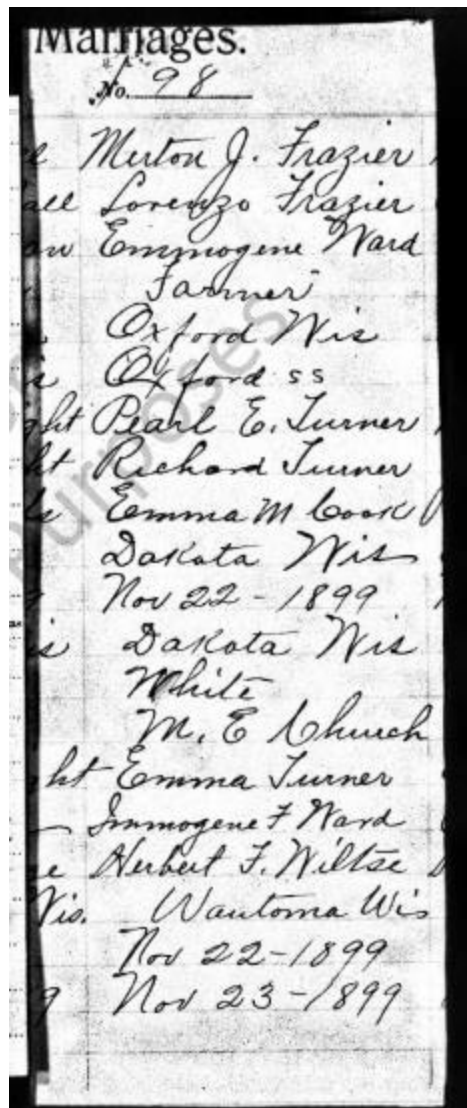 Marriages.
No. 98
Merton J. Frazier
Lorenzo Frazier
Emmogene Ward
Farmer
Oxford Wis
Oxford ss
ght Pearl E. Turner
ht Richard Turner
Emma M Cook
Dakota Wis
9 Nov 22 - 1899
is Dakota Wis
White
M. E Church
ght Emma Turner
Immogene F Ward
Herbert F. Wiltse
Wis. Wautoma Wis
Nov 22 - 1899
9 Nov 23 - 1899
urposes